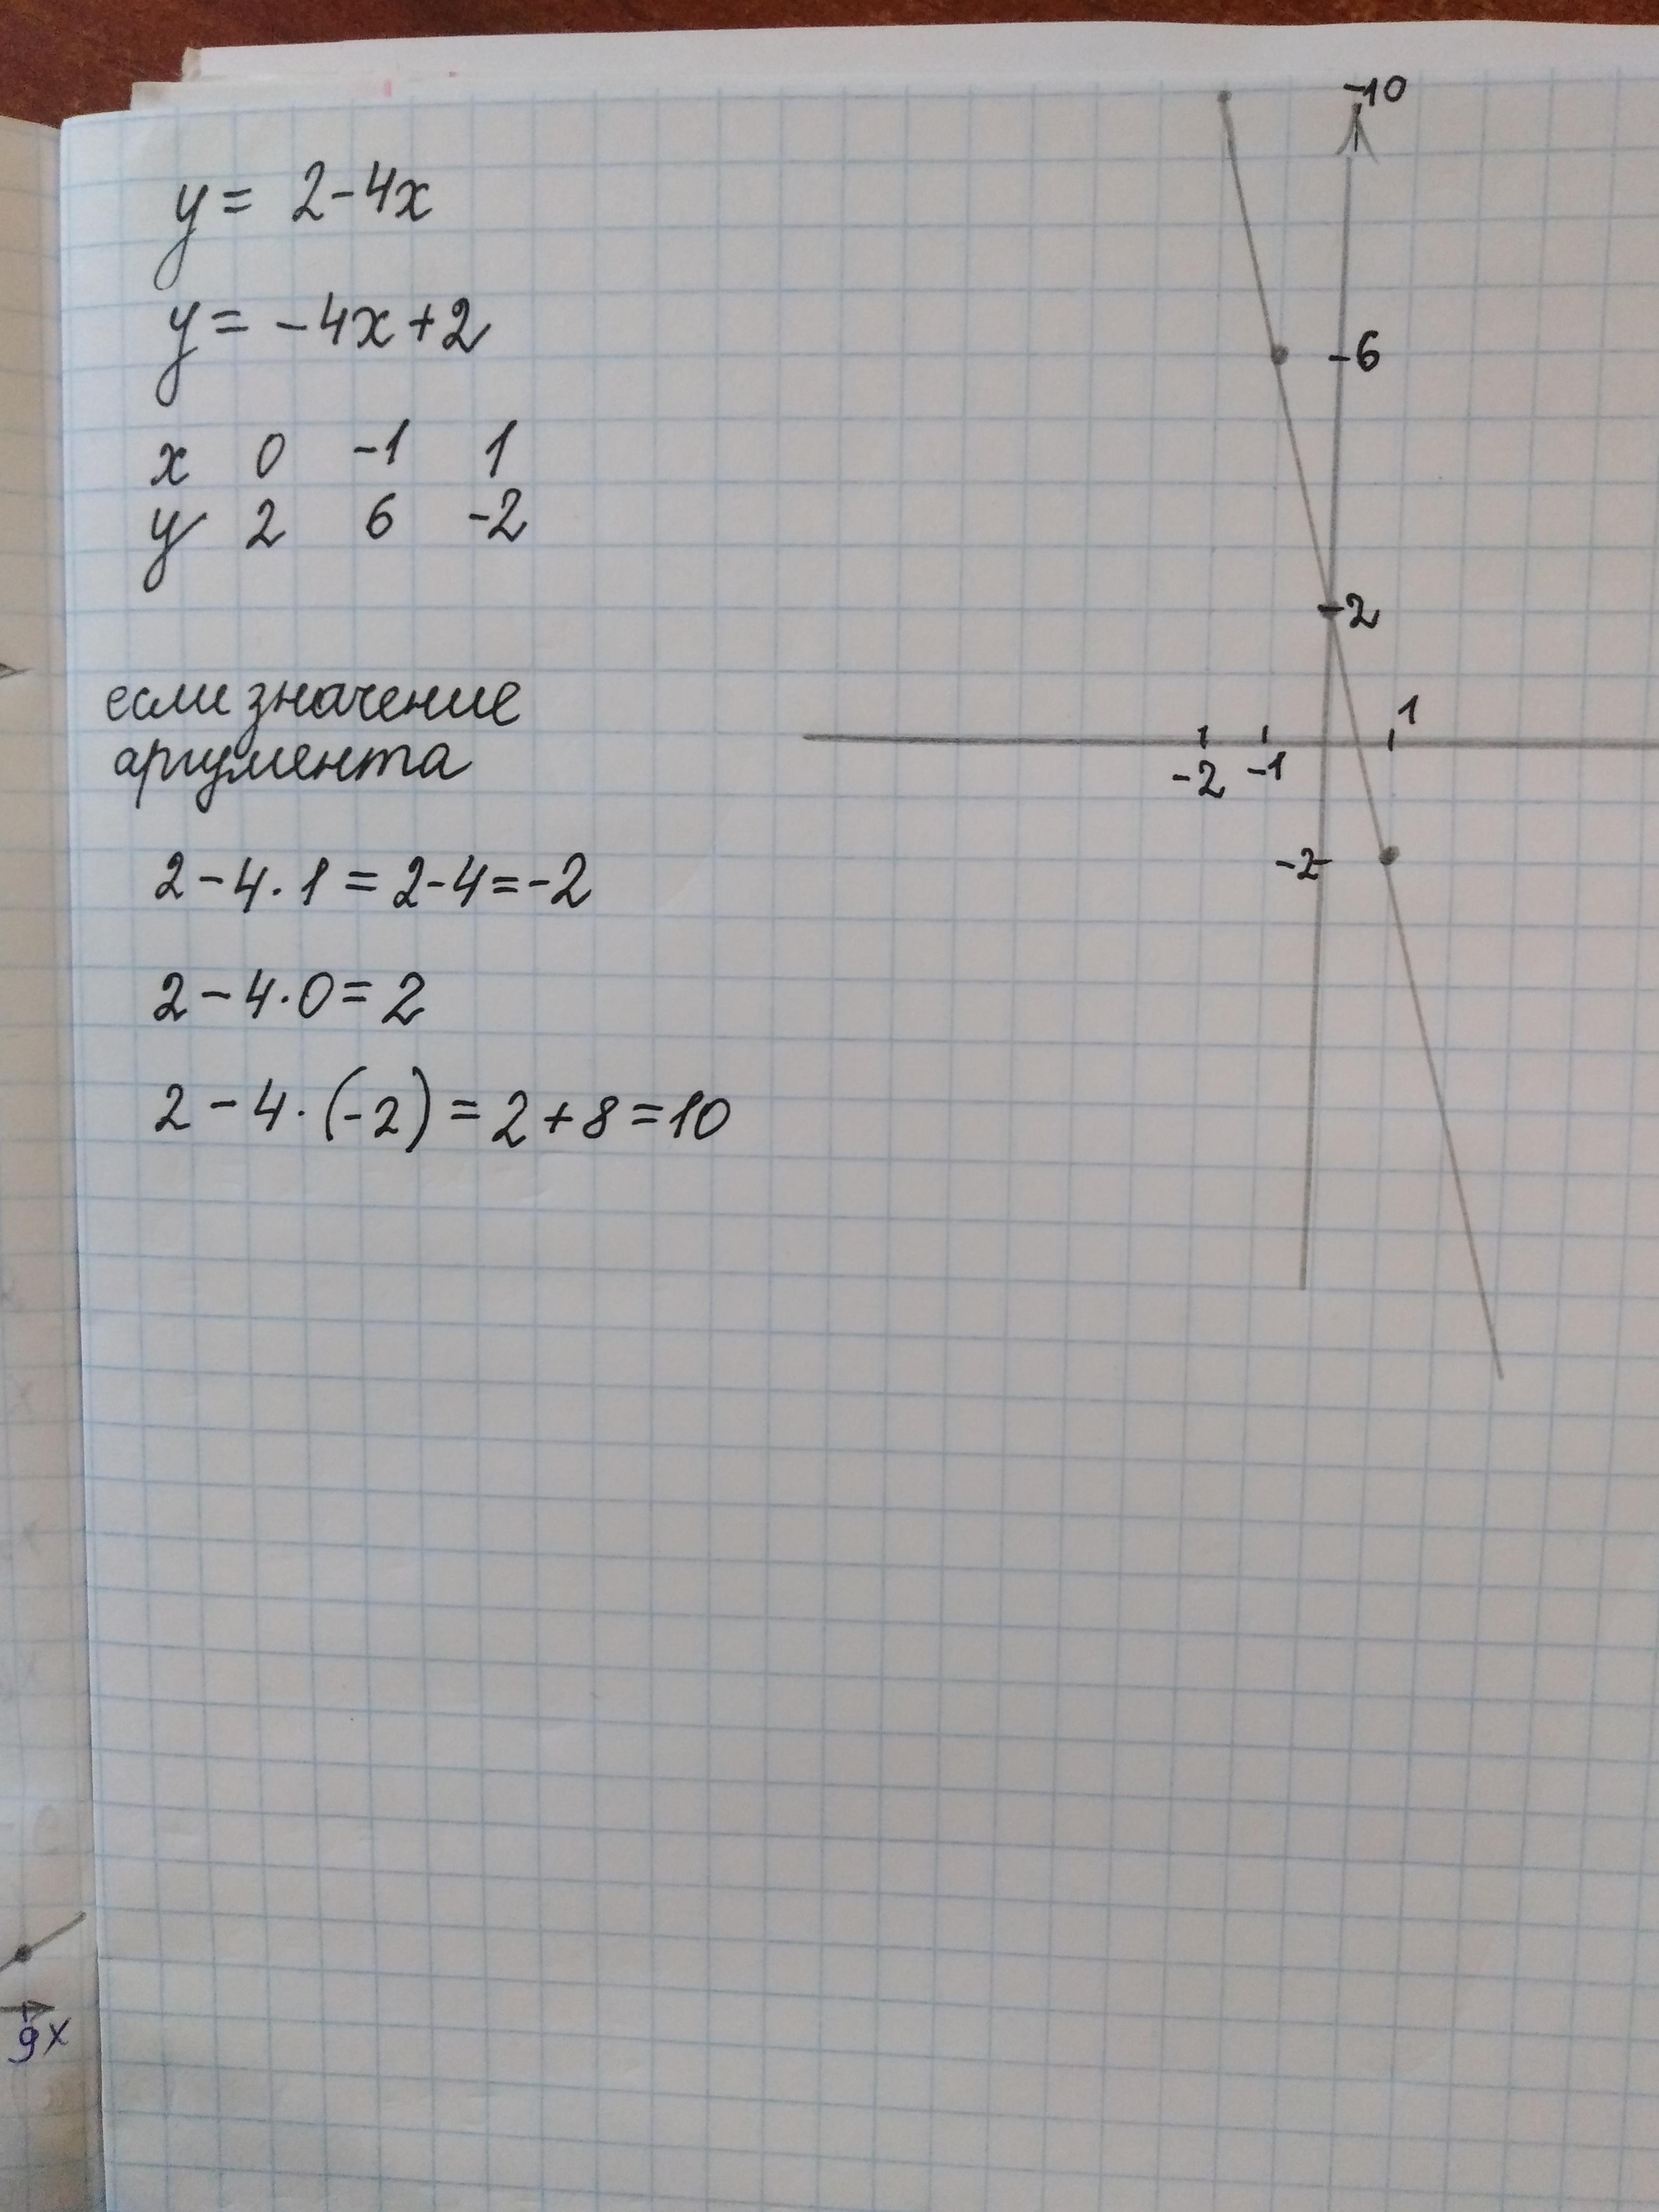 y = 2-4x
y = -4x+2
x 0 -1 1
y 2 6 -2
если значение
аргумента
2-4·1=2-4=-2
2-4·0=2
2-4·(-2)=2+8=10
-10
-6
-2
1
-2 -1
-2
9x